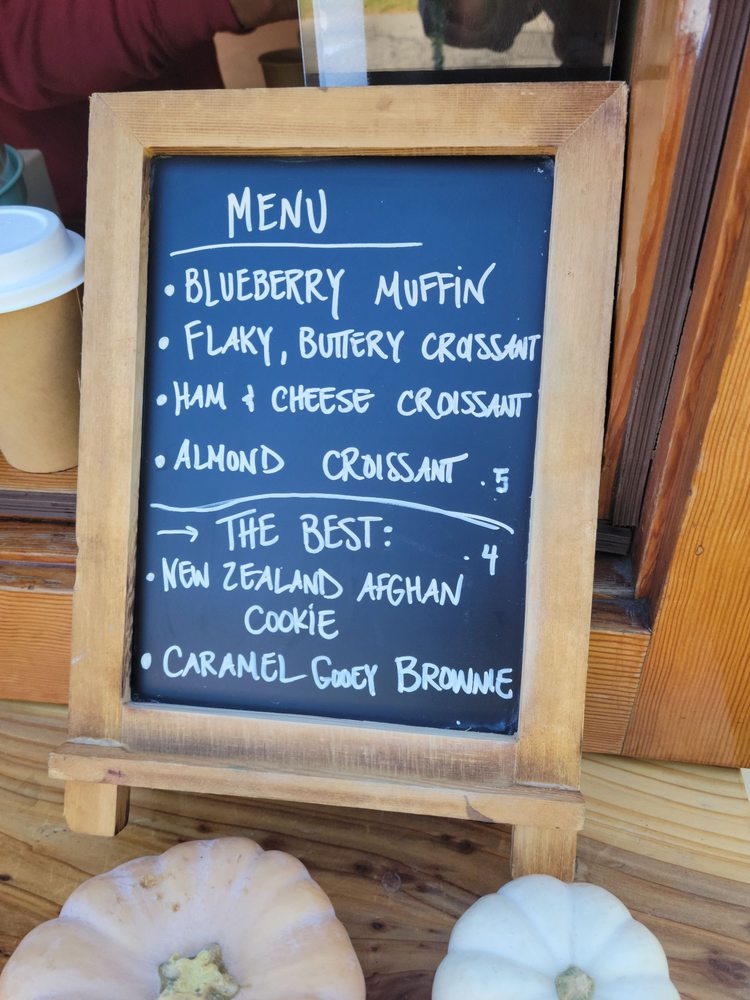 MENU
• BLUEBERRY MUFFIN
• FLAKY, BUTTERY CROISSANT
• HAM & CHEESE CROISSANT
• ALMOND CROISSANT . 5
→ THE BEST:
. 4
• NEW ZEALAND AFGHAN
COOKIE
• CARAMEL GOOEY BROWNIE